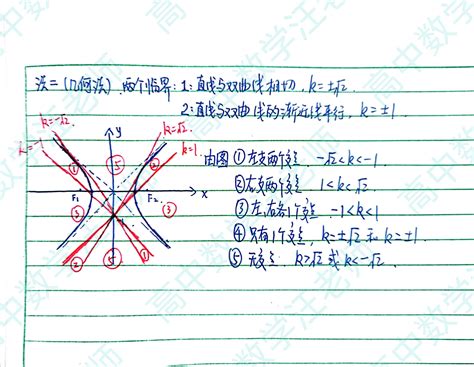 法二(几何法) 两个临界: 1: 直线与双曲线相切, k=±√2.
2: 直线与双曲线的渐近线平行, k=±1
k=-√2 y k=√2
k=-1 k=1
由图 ① 左支两个交点 -√2<k<-1
② 右支两个交点 1<k<√2
③ 左、右各1个交点 -1<k<1
④ 只有1个交点, k=±√2 和 k=±1.
⑤ 无交点 k>√2 或 k<-√2.
① ⑤ ②
F₁ F₂ x
③ ③
② ⑤ ①
高中数学汪老师